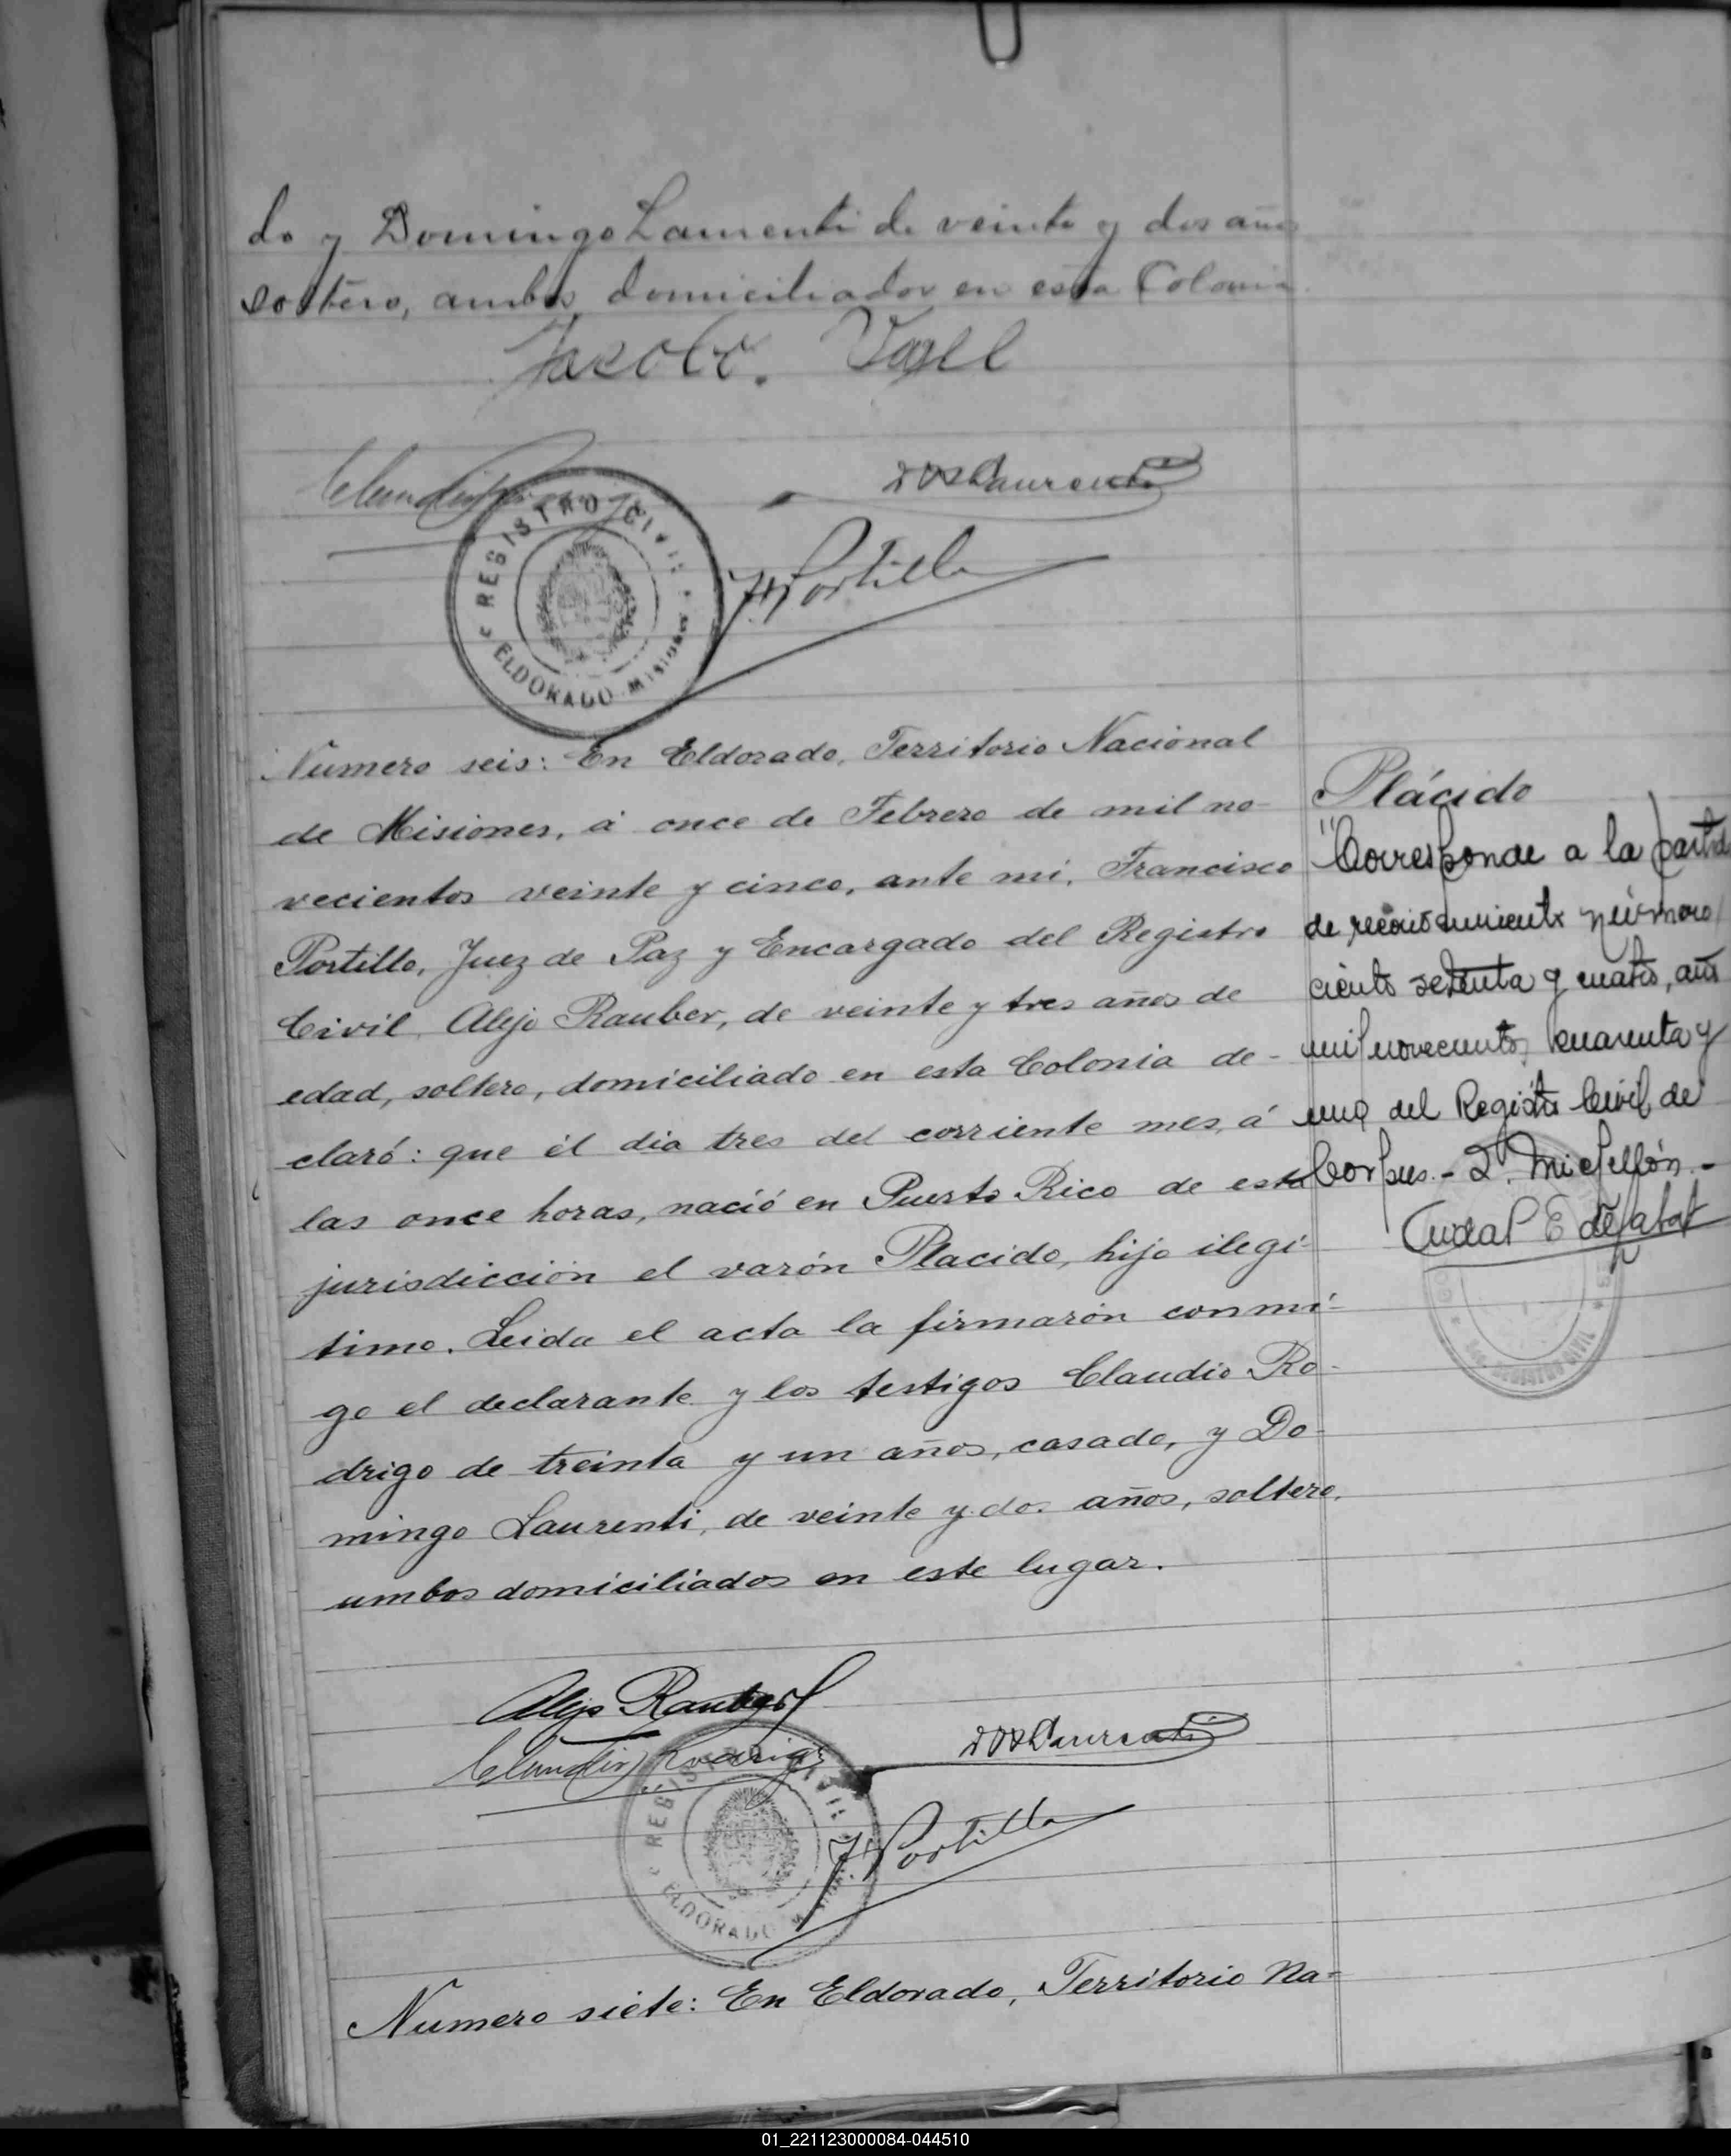 do y Domingo Laurenti de veinte y dos años
soltero, ambos domiciliados en esta Colonia.
Jacobo.
Laurenti
F. Portillo
REGISTRO CIVIL
ELDORADO MISIONES
Numero seis: En Eldorado, Territorio Nacional
de Misiones, á once de Febrero de mil no-
vecientos veinte y cinco, ante mi, Francisco
Portillo, Juez de Paz y Encargado del Registro
Civil, Alejo Rauber, de veinte y tres años de
edad, soltero, domiciliado en esta Colonia de-
claró: que el dia tres del corriente mes, á
las once horas, nació en Puerto Rico de esta
jurisdicción el varón Placido, hijo ilegi-
timo. Leida el acta la firmarón conmi-
go el declarante y los testigos Claudio Ro-
drigo de treinta y un años, casado, y Do-
mingo Laurenti, de veinte y dos años, soltero,
ambos domiciliados en este lugar.
Plácido
"Corresponde a la partida
de reconocimiento número
ciento setenta y cuatro, año
mil novecientos cuarenta y
uno del Registro Civil de
Corpus.-
Alejo Rauber
Claudio Rodrigo
Laurenti
F. Portillo
REGISTRO CIVIL
ELDORADO
Numero siete: En Eldorado, Territorio Na-
01_221123000084-044510